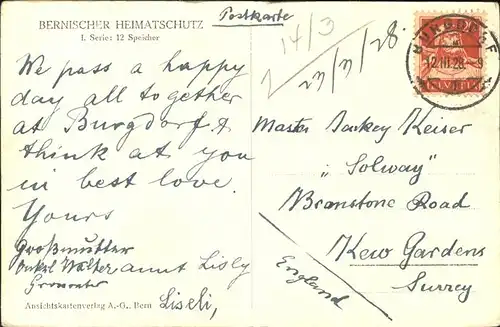 BERNISCHER HEIMATSCHUTZ
I. Serie: 12 Speicher
Postkarte
14/3
23/3/28
BURGDORF
12.III.28. 9
HELVETIA
We pass a happy
day all together
at Burgdorf &
think at you
in best love.
Yours
Großmutter
Onkel Walter aunt Lisly
Grossvater
Liseli,
Master Jackey Keiser
„Solway"
Branstone Road
Kew Gardens
Surrey
England
Ansichtskartenverlag A.-G., Bern